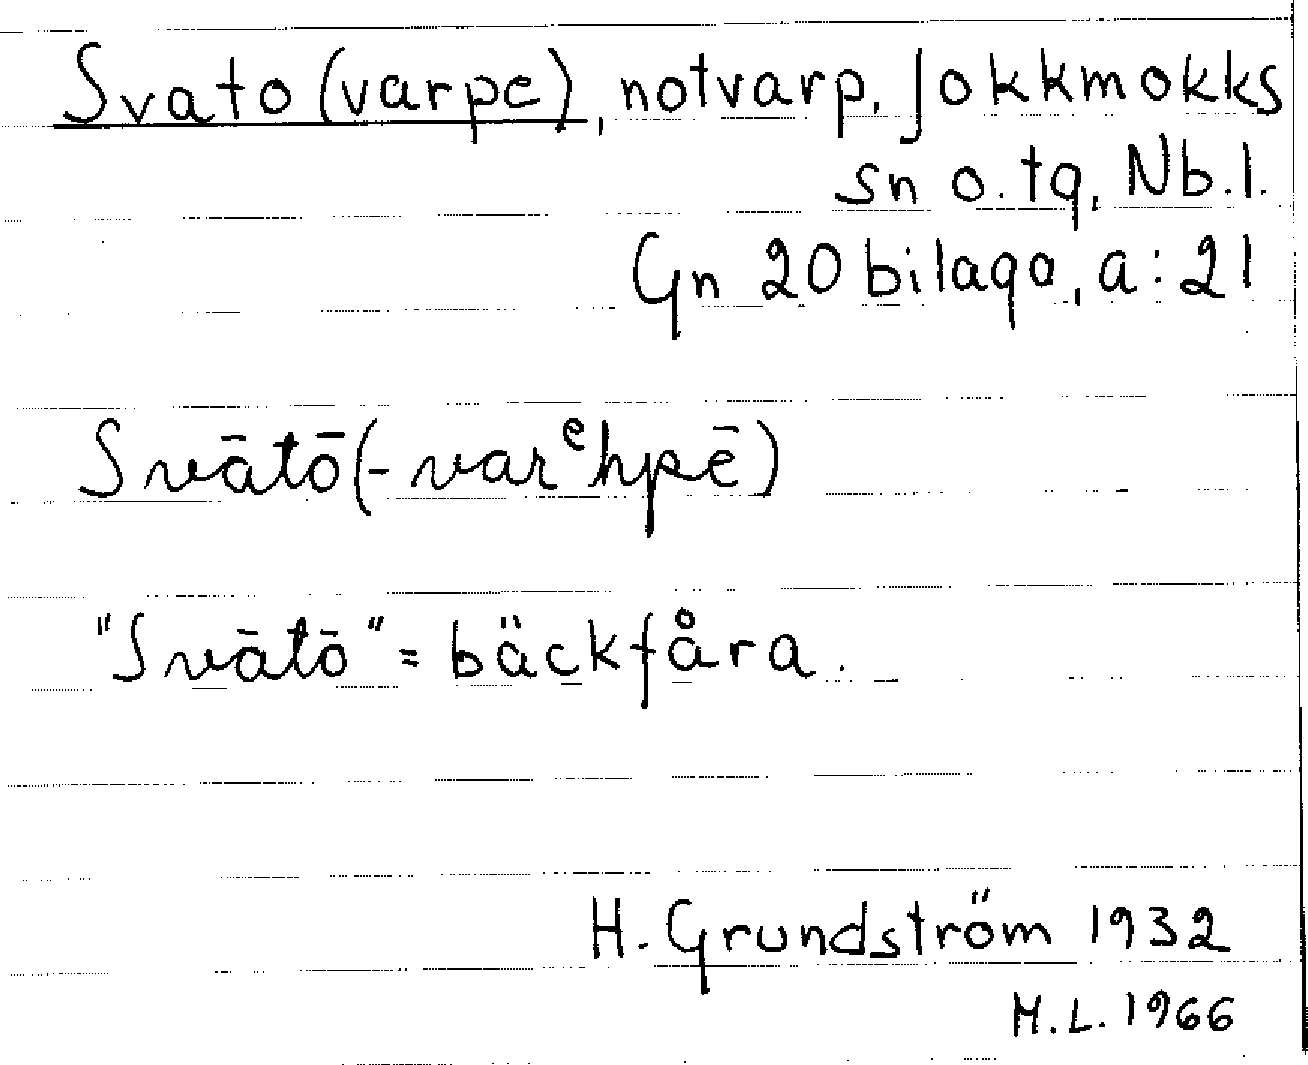 Svato (varpe), notvarp, Jokkmokks
sn o. tg, Nb. l.
Gn 20 bilaga, a: 21
Svātō (-varᵉhpē)
"Svātō" = bäckfåra.
H. Grundström 1932
M.L. 1966